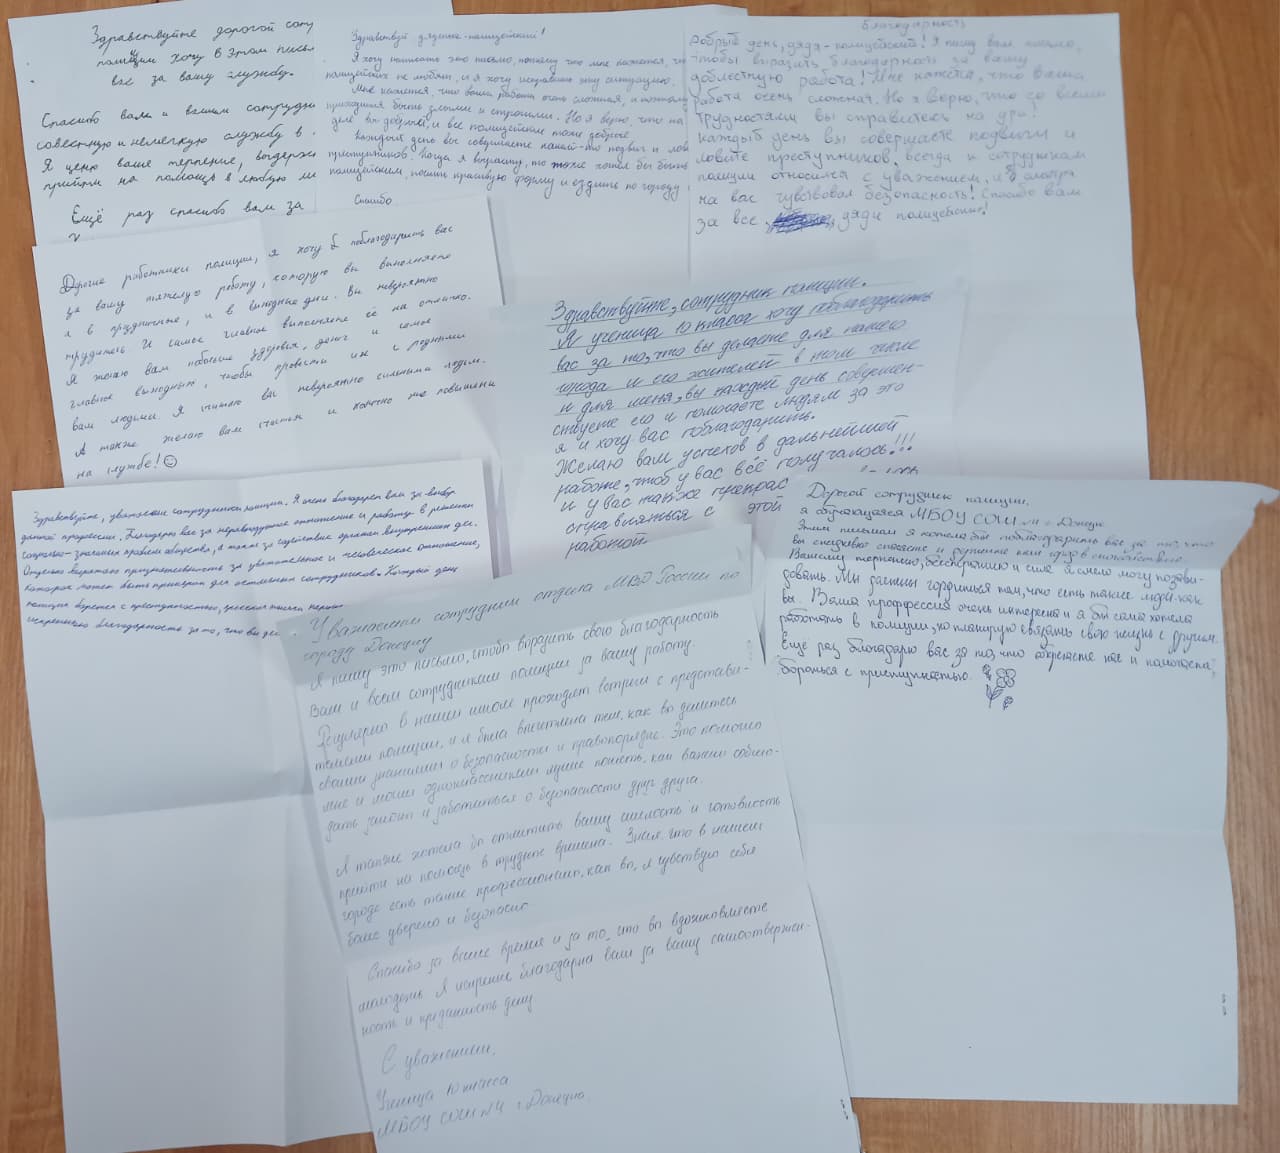 Здравствуйте дорогой сотр
полиции хочу в этом письм
вас за вашу службу.
Спасибо вам и вашим сотрудн
совестную и нелегкую службу в
Я ценю ваше терпение, выдерж
прийти на помощь в любую ми
Ещё раз спасибо вам за
Здравствуй дяденька-полицейский!
Я хочу написать это письмо, потому что мне кажется, что
полицейских не любят, и я хочу исправить эту ситуацию.
Мне кажется, что ваша работа очень сложная, и поэтому
приходится быть злыми и строгими. Но я верю, что на
деле вы добрый, и все полицейские тоже добрые.
Каждый день вы совершаете какой-то подвиг и лов
преступников. Когда я вырасту, то тоже хотел бы быть
полицейским, носить красивую форму и ездить по городу
Спасибо
Благодарность
Добрый день, дядя-полицейский! Я пишу вам письмо,
чтобы выразить благодарность за вашу
доблестную работа! Мне кажется, что ваша
работа очень сложная. Но я верю, что со всеми
трудностями вы справитесь на ура!
Каждый день вы совершаете подвиги и
ловите преступников, всегда к сотрудникам
полиции относился с уважением, и смотря
на вас чувствовал безопасность! Спасибо вам
за все, дяди полицейские!
Дорогие работники полиции, я хочу поблагодарить вас
за вашу тяжелую работу, которую вы выполняете
и в праздничные, и в выходные дни. Вы невероятно
трудитесь. И самое главное выполняете её на отлично.
Я желаю вам побольше здоровья, денег и самое
главное выходных, чтобы провести их с родными
вам людьми. Я считаю вы невероятно сильными людьми.
А также желаю вам счастья и конечно же повышения
на службе!
Здравствуйте, сотрудник полиции.
Я ученица 10 класса хочу поблагодарить
вас за то, что вы делаете для нашего
города и его жителей в том числе
и для меня, вы каждый день совершен-
ствуете его и помогаете людям за это
я и хочу вас поблагодарить.
Желаю вам успехов в дальнейшей
работе, чтоб у вас всё получалось!!!
и у вас также прекрас
справляться с этой
работой.
Здравствуйте, уважаемые сотрудники полиции. Я очень благодарен вам за выбор
данной профессии. Благодарю вас за неравнодушное отношение и работу в решении
социально-значимых проблем общества, а также за содействие органам внутренних дел.
Отдельно выражаю признательность за уважительное и человеческое отношение,
которое может быть примером для остальных сотрудников. Каждый день
полиция борется с преступностью,
искреннюю благодарность за то, что вы де
Дорогой сотрудник полиции,
я обучающаяся МБОУ СОШ №4 г. Донецк
Этим письмом я хотела бы поблагодарить вас за то, что
вы ежедневно спасаете и держите наш город в спокойствие.
Вашему терпению, бесстрашию и силе я смело могу позави-
довать. Мы должны гордиться тем, что есть такие люди как
вы. Ваша проффессия очень интересна и я бы сама хотела
работать в полиции, но планирую связать свою жизнь с другим.
Ещё раз благодарю вас за то, что оберегаете нас и помогаете
бороться с приступностью.
Уважаемые сотрудники отдела МВД России по
городу Донецку
Я пишу это письмо, чтобы выразить свою благодарность
Вам и всем сотрудникам полиции за вашу работу.
Регулярно в нашей школе проходят встречи с представи-
телями полиции, и я была впечатлена тем, как вы делитесь
своими знаниями о безопасности и правопорядке. Это помогло
мне и моим одноклассникам лучше понять, как важно соблю-
дать закон и заботиться о безопасности друг друга.
Я также хотела бы отметить вашу смелость и готовность
прийти на помощь в трудные времена. Зная, что в нашем
городе есть такие профессионалы, как вы, я чувствую себя
более уверено и безопасно
Спасибо за ваше время и за то, что вы вдохновляете
молодежь. Я искренне благодарна вам за вашу самоотвержен-
ность и преданность делу
С уважением,
Ученица 10 класса
МБОУ СОШ №4 г. Донецка.